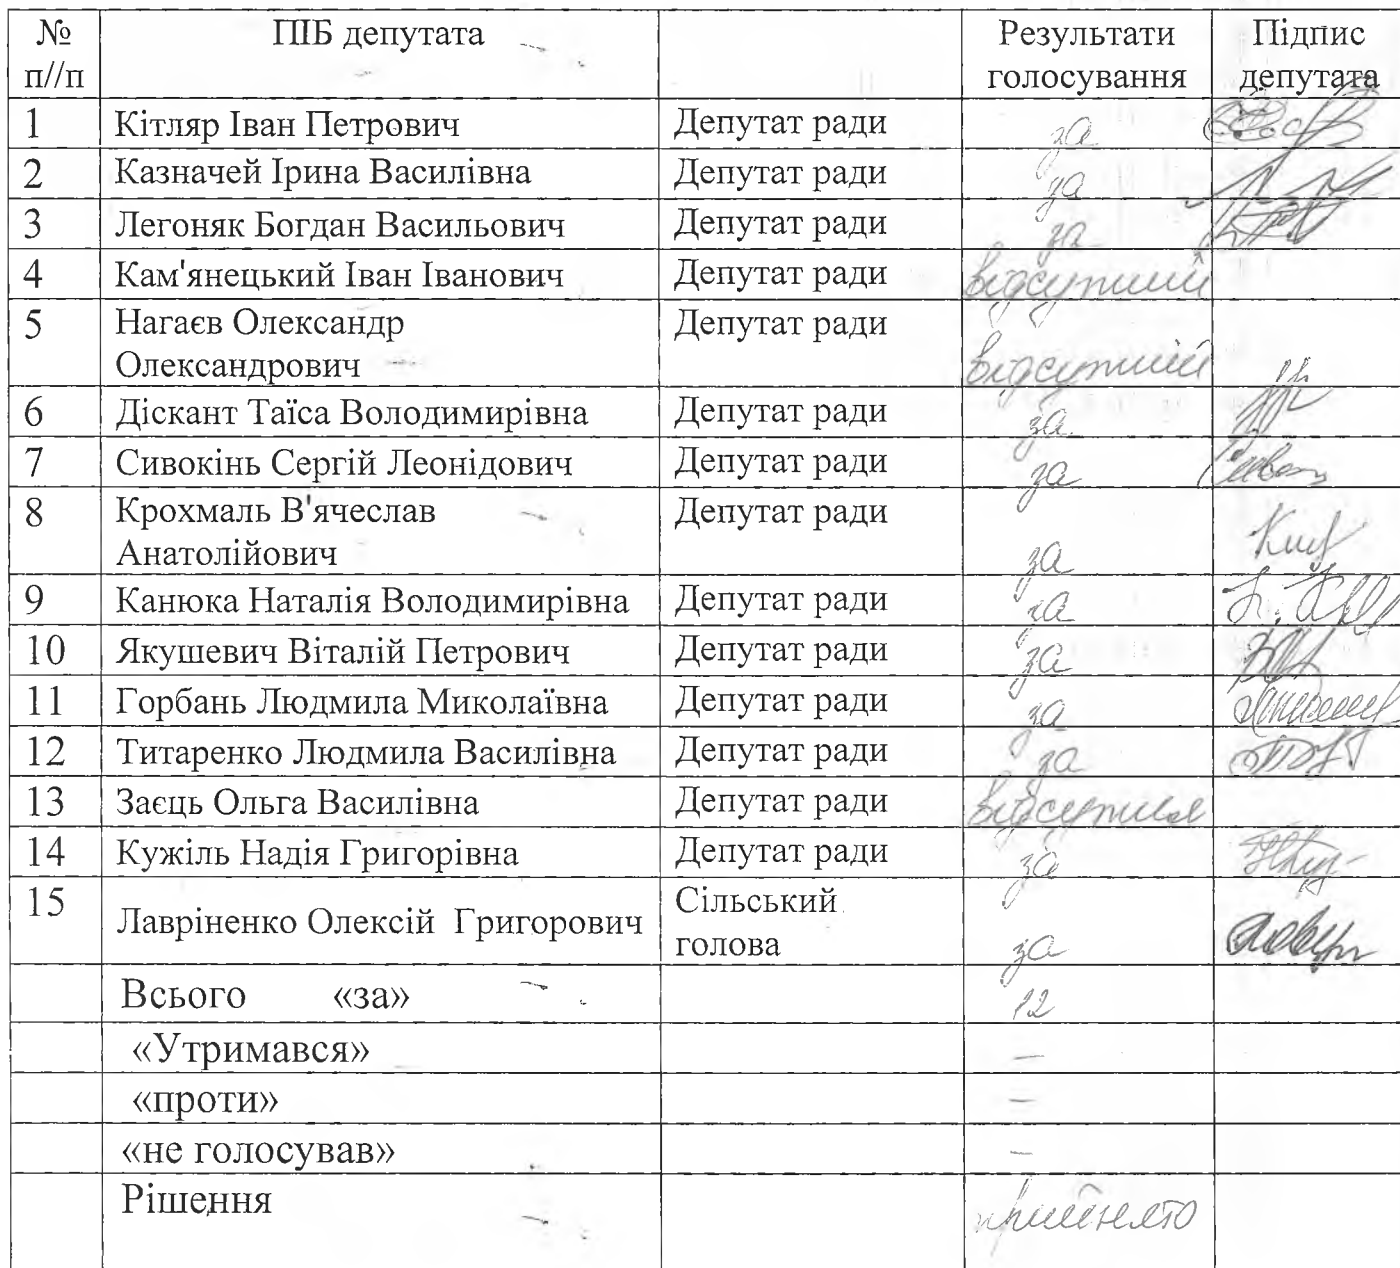 № п//п ПІБ депутата Результати голосування Підпис депутата
1 Кітляр Іван Петрович Депутат ради за
2 Казначей Ірина Василівна Депутат ради за
3 Легоняк Богдан Васильович Депутат ради за
4 Кам'янецький Іван Іванович Депутат ради відсутній
5 Нагаєв Олександр Олександрович Депутат ради відсутній
6 Діскант Таїса Володимирівна Депутат ради за
7 Сивокінь Сергій Леонідович Депутат ради за
8 Крохмаль В'ячеслав Анатолійович Депутат ради за
9 Канюка Наталія Володимирівна Депутат ради за
10 Якушевич Віталій Петрович Депутат ради за
11 Горбань Людмила Миколаївна Депутат ради за
12 Титаренко Людмила Василівна Депутат ради за
13 Заєць Ольга Василівна Депутат ради відсутня
14 Кужіль Надія Григорівна Депутат ради за
15 Лавріненко Олексій Григорович Сільський голова за
Всього «за» 12
«Утримався» –
«проти» –
«не голосував» –
Рішення прийнято